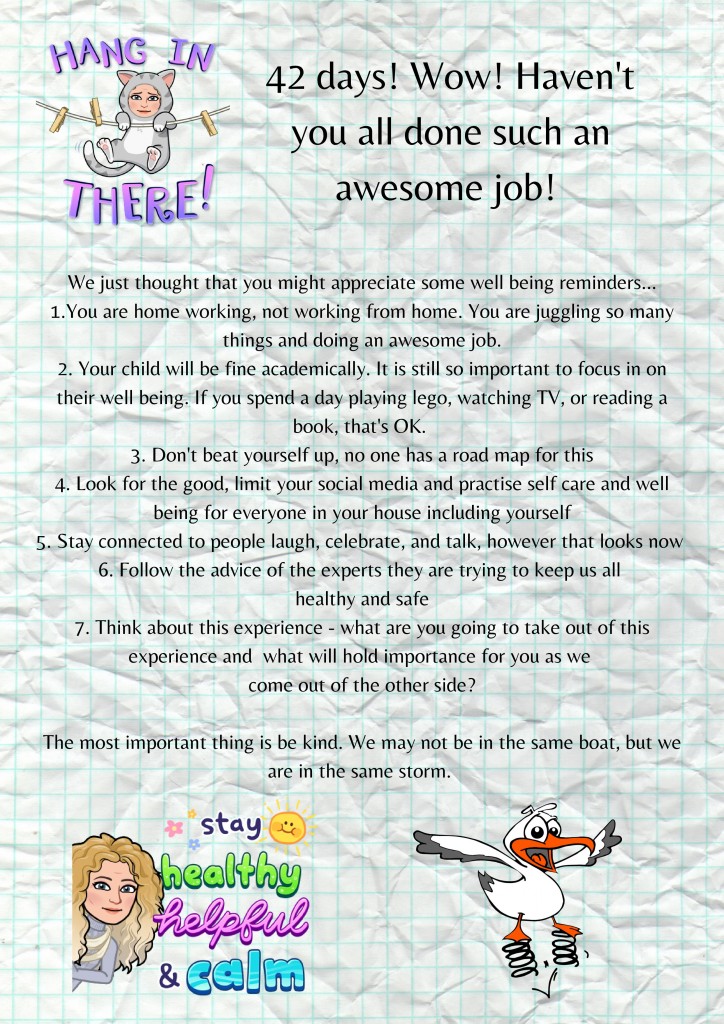 HANG IN
THERE!
42 days! Wow! Haven't
you all done such an
awesome job!
We just thought that you might appreciate some well being reminders...
1.You are home working, not working from home. You are juggling so many
things and doing an awesome job.
2. Your child will be fine academically. It is still so important to focus in on
their well being. If you spend a day playing lego, watching TV, or reading a
book, that's OK.
3. Don't beat yourself up, no one has a road map for this
4. Look for the good, limit your social media and practise self care and well
being for everyone in your house including yourself
5. Stay connected to people laugh, celebrate, and talk, however that looks now
6. Follow the advice of the experts they are trying to keep us all
healthy and safe
7. Think about this experience - what are you going to take out of this
experience and  what will hold importance for you as we
come out of the other side?
The most important thing is be kind. We may not be in the same boat, but we
are in the same storm.
stay
healthy
helpful
& calm